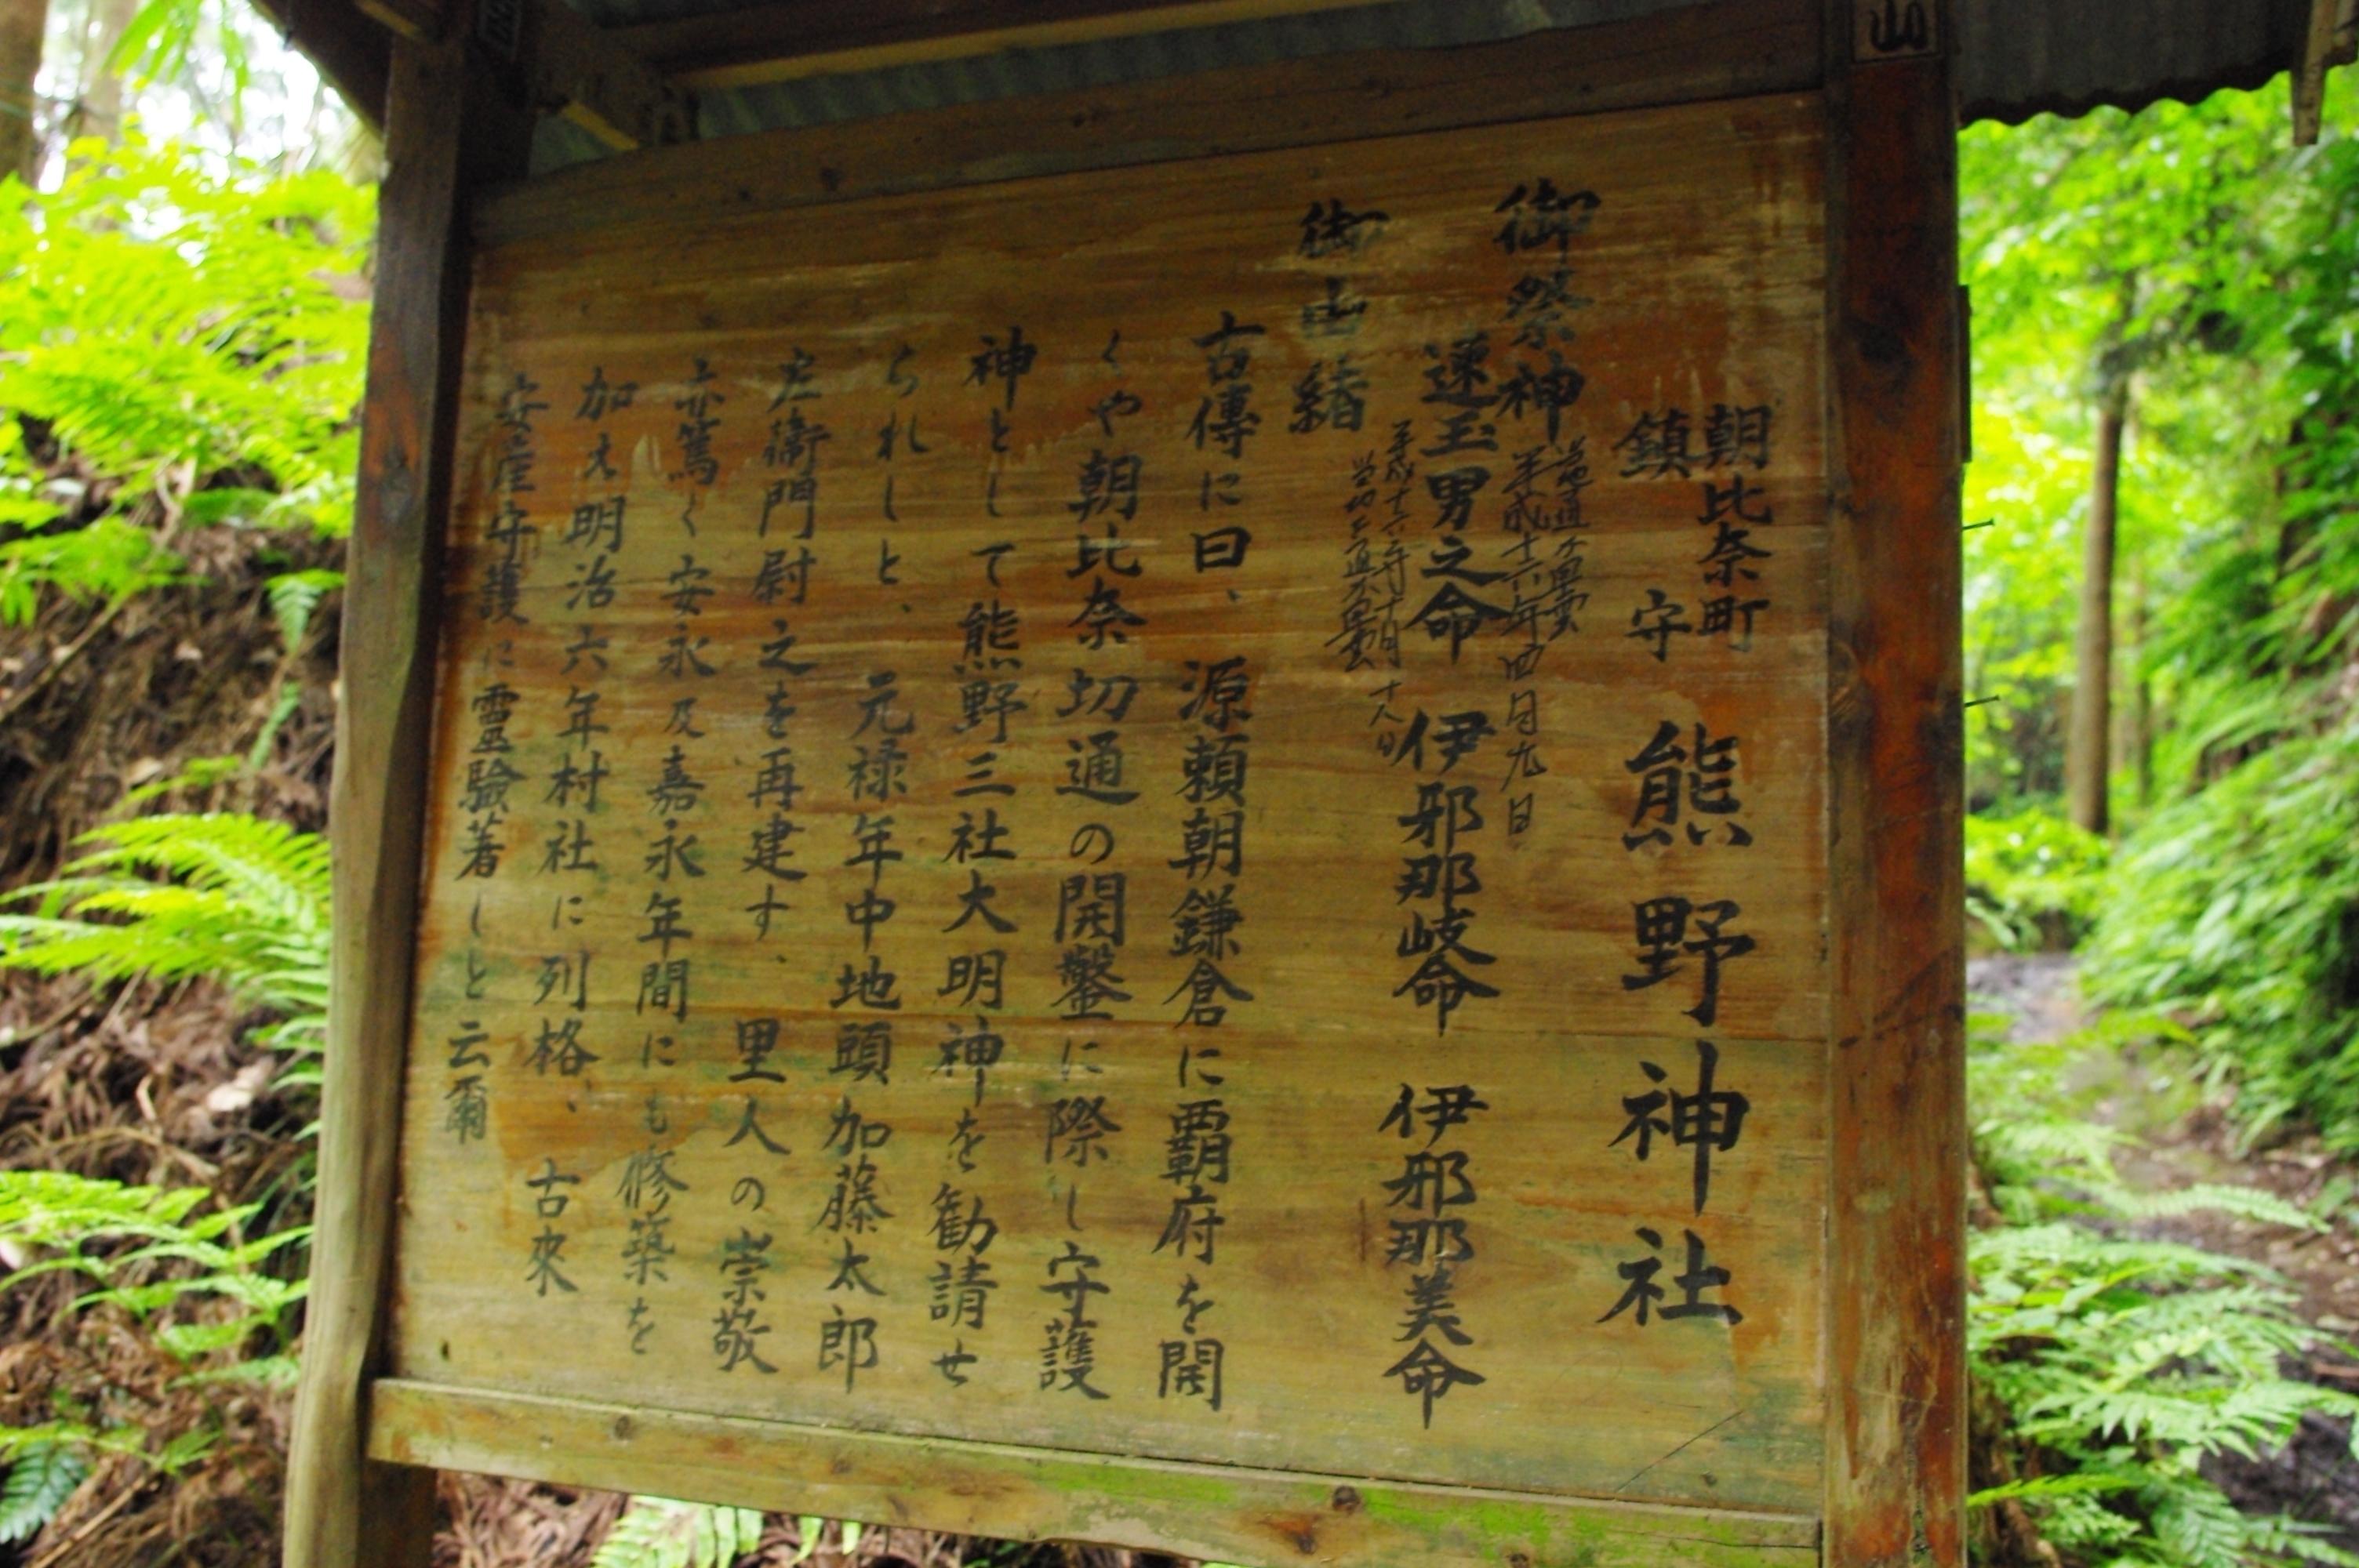 朝比奈町
鎮守
熊野神社
御祭神
平成十六年四月九日
速玉男之命 伊邪那岐命 伊邪那美命
十八日
御由緒
古傳に曰、源頼朝鎌倉に覇府を開
くや朝比奈切通の開鑿に際し守護
神として熊野三社大明神を勧請せ
られしと、元禄年中地頭加藤太郎
左衛門尉之を再建す、里人の崇敬
亦篤く安永及嘉永年間にも修築を
加え明治六年村社に列格、古來
安産守護に霊験著しと云爾
山